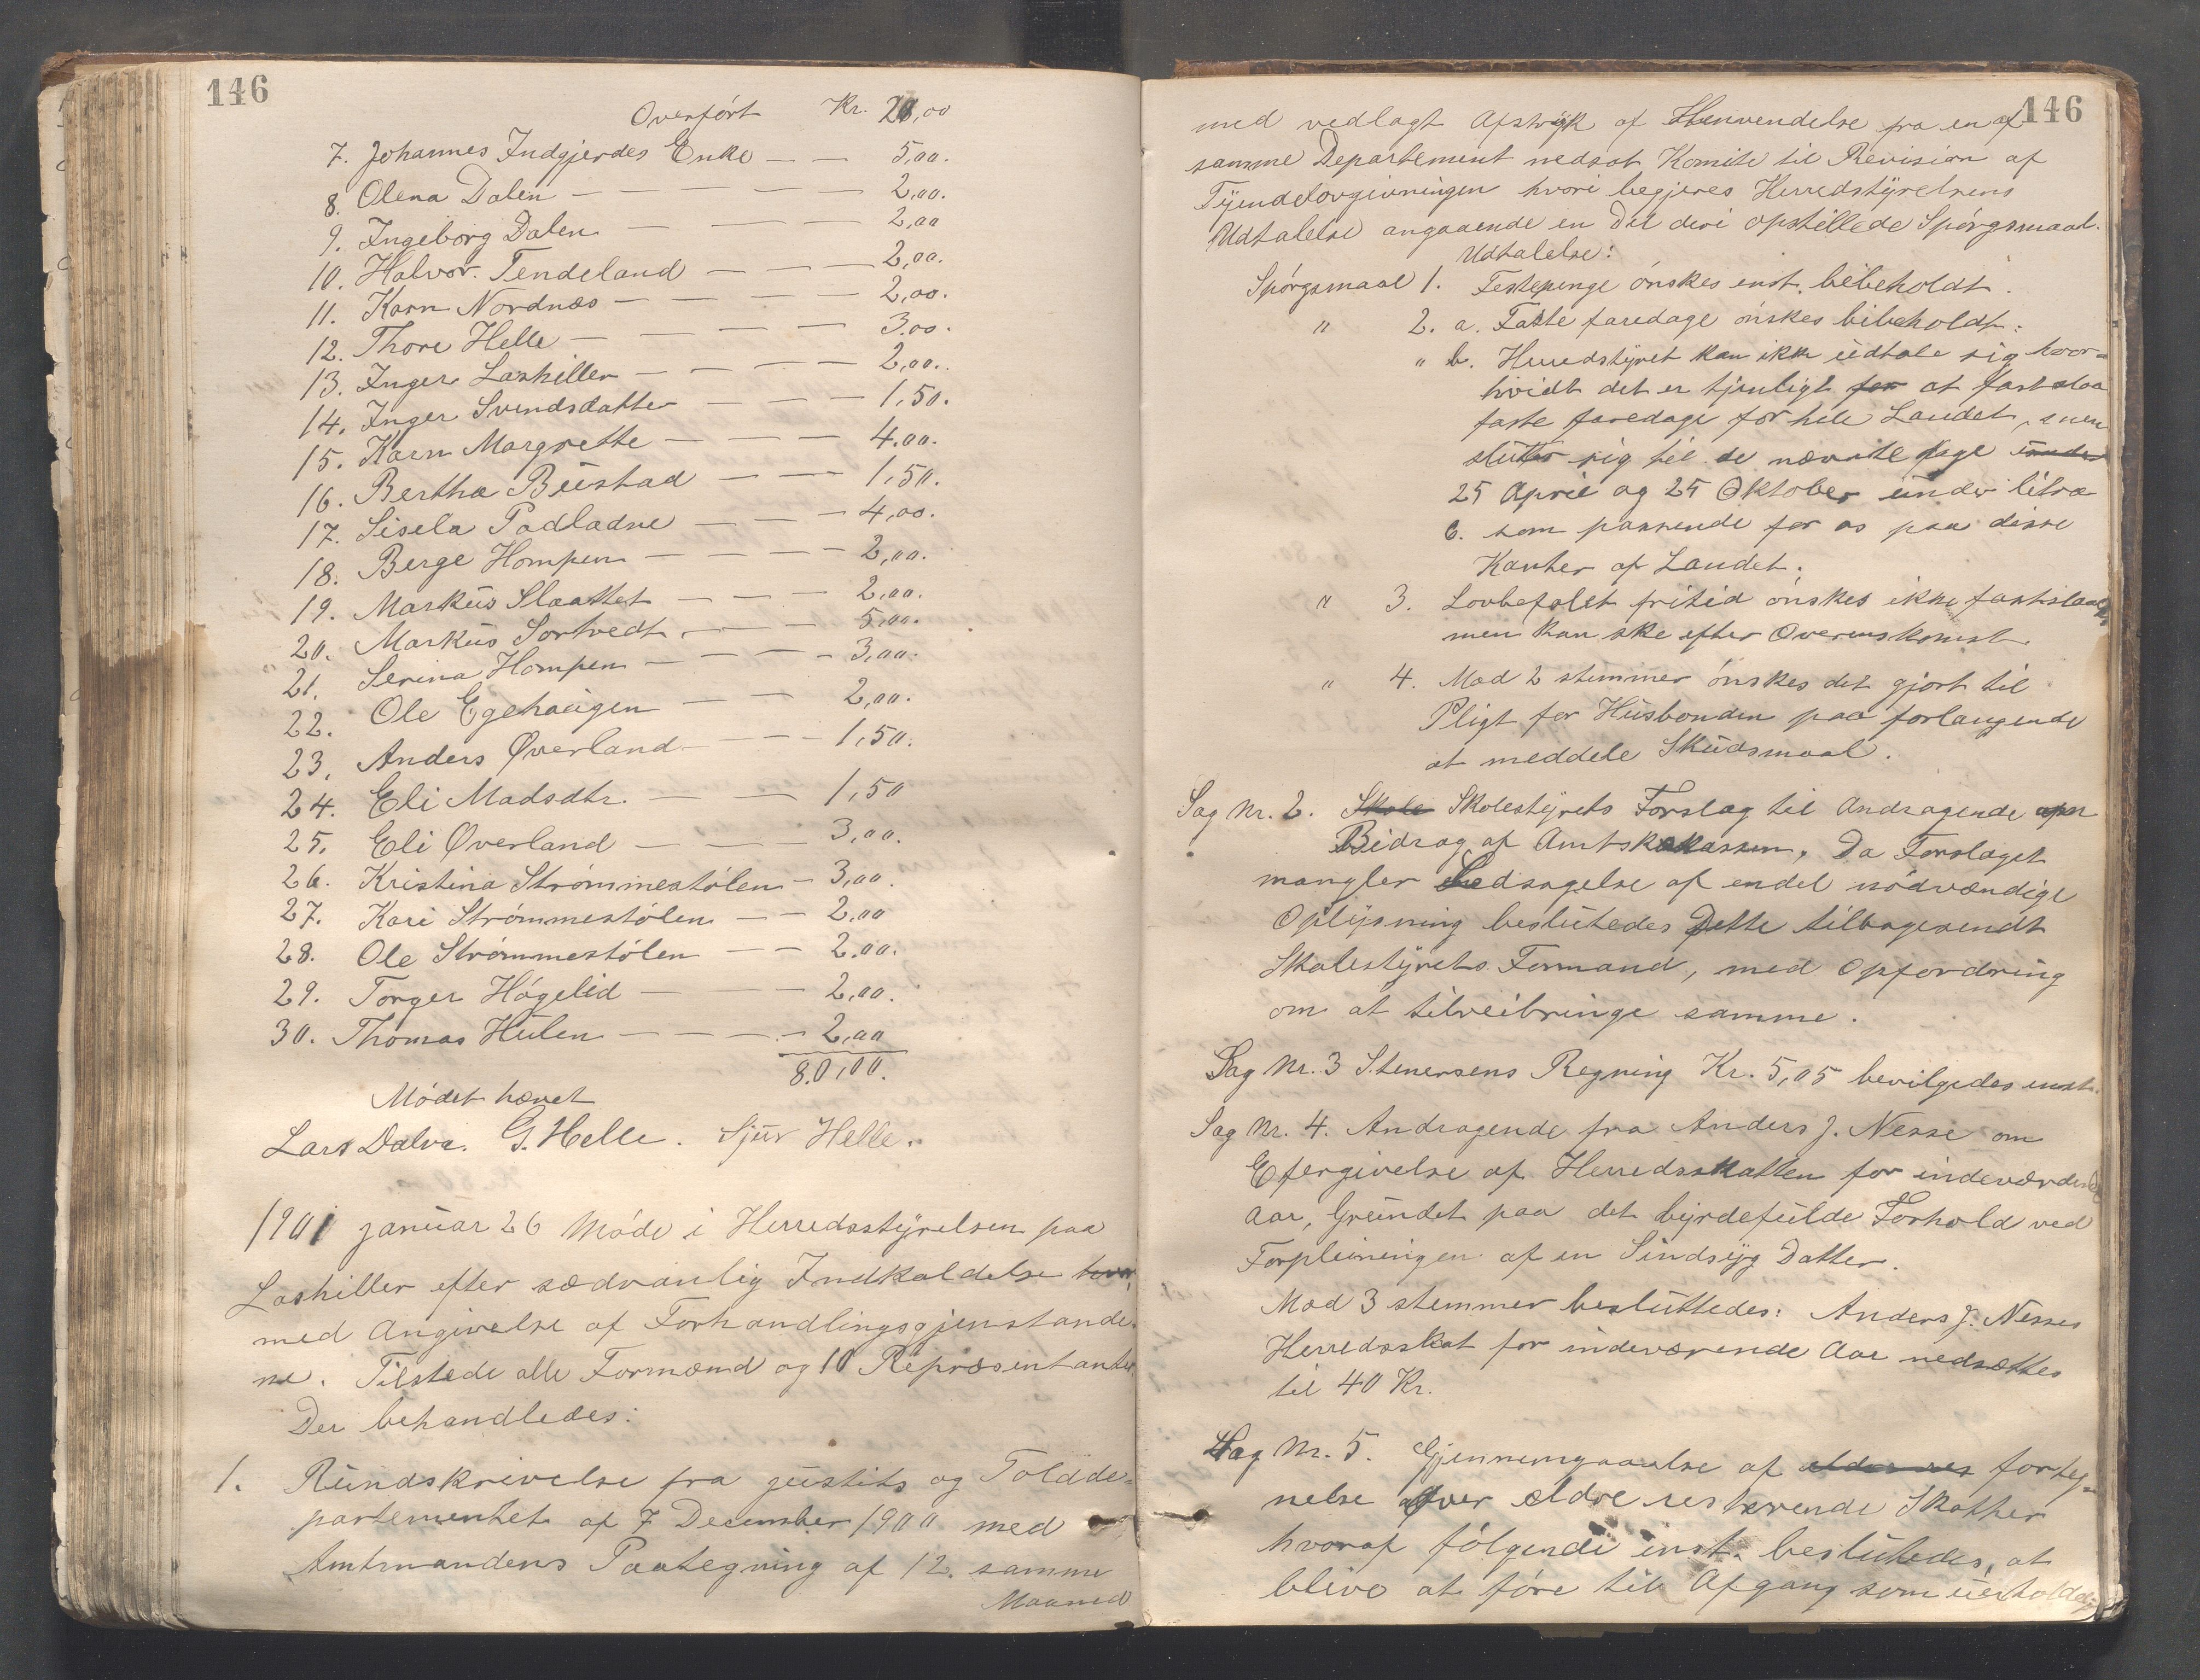 146
Overført Kr. 20,00
7. Johannes Indgjerdes Enke — — 5,00.
8. Olena Dalen — — — — — 2,00.
9. Ingeborg Dalen — — — — 2,00
10. Halvor Tendeland — — — 2,00.
11. Karn Nordnæs — — — — 2,00.
12. Thore Helle — — — — 3.00.
13. Inger Laskillen — — — — 2,00.
14. Inger Svendsdatter — — — 1,50.
15. Karn Margrette — — — 4.00.
16. Bertha Büstad — — — 1,50.
17. Sisela Padladne — — — 4,00.
18. Berge Hompen — — — — 2,00.
19. Markus Slaattet — — — 2,00.
20. Markus Sortvedt — — — 5,00.
21. Serina Hompen — — — — 3,00.
22. Ole Egehaugen — — 2,00.
23. Anders Øverland — — — 1,50.
24. Eli Madsdtr. — — 1,50
25. Eli Øverland — — — 3,00.
26. Kristina Strømmestølen — 3,00.
27. Kari Strømmestølen — — 2,00
28. Ole Strømmestølen — — 2.00.
29. Torger Høgelid — — — 2,00.
30. Thomas Hülen — — — — 2,00
80,00.
Mødet hævet
Lars Dalva. G. Helle. Sjur Helle.
1901 januar 26 Møde i Herredsstyrelsen paa
Laskillen efter sædvanlig Indkaldelse hvor
med Angivelse af Forhandlingsgjenstande-
ne. Tilstede alle Formænd og 10 Repræsentanter.
Der behandledes:
1. Rundskrivelse fra justits og Toldde-
partementet af 7 December 1900 med
Amtmandens Paategning af 12. samme
Maaned
146
med vedlagt Afstryk af Henvendelse fra en af
samme Departement nedsat Komite til Revision af
Tyendelovgivningen hvori begjeres Herredstyrelsens
Udtalelse angaaende en Del deri opstillede Spørgsmaal.
Udtalelse:
Spørgsmaal 1. Festepenge ønskes enst. bibeholdt.
" 2. a. Faste faredage ønskes bibeholdt.
" b. Herredstyret kan ikke udtale sig hvor-
hvidt det er tjenligt for at fastslaa
faste faredage for hele Landet, men
slutter sig til de nævnte dage under
25 April og 25 Oktober under litra
C. som passende for os paa disse
Kanter af Landet.
" 3. Lovbefalet fritid ønskes ikke fastslaaet,
men kan ske efter Overenskomst.
" 4. Mod 2 stemmer ønskes det gjort til
Pligt for Husbonden paa forlangende
at meddele Skudsmaal.
Sag Nr. 2. Skole Skolestyrets Forslag til Andragende om
Bidrag af Amtskassen. Da Forslaget
mangler Ledsagelse af endel nødvændige
Oplysning beslutedes Dette tilbagesendt
Skolestyrets Formand, med Opfordring
om at tilveibringe samme.
Sag Nr. 3 Stenersens Regning Kr. 5,05 bevilgedes enst.
Sag Nr. 4. Andragende fra Anders J. Nesse om
Efergivelse af Herredsskatten for indeværende
Aar, Grundet paa det byrdefulde Forhold ved
Forpleiningen af en Sindsyg Datter.
Mod 3 stemmer besluttedes: Anders J. Nesses
Herredsskat for indeværende Aar nedsættes
til 40 Kr.
Sag Nr. 5. Gjennemgaaelse af forteg-
nelse over eldre resterende Skatter
hvoraf følgende enst. beslutedes at
blive at føre til Afgang som uerholdelig